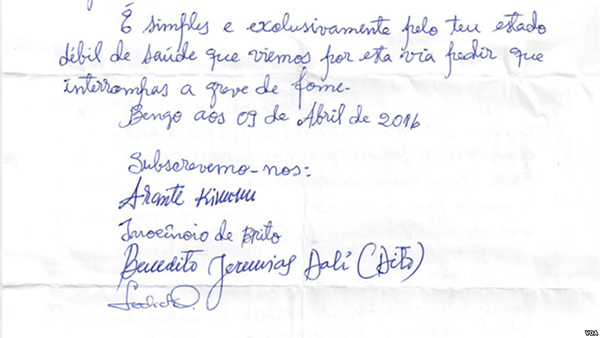 É simples e exclusivamente pelo teu estado
débil de saúde que viemos por esta via pedir que
interrompas a greve de fome.
Bengo aos 09 de Abril de 2016
Subscrevemo-nos:
Arante Kivuvu
Inocêncio de Brito
Benedito Jeremias Dali (Dito)
VOA